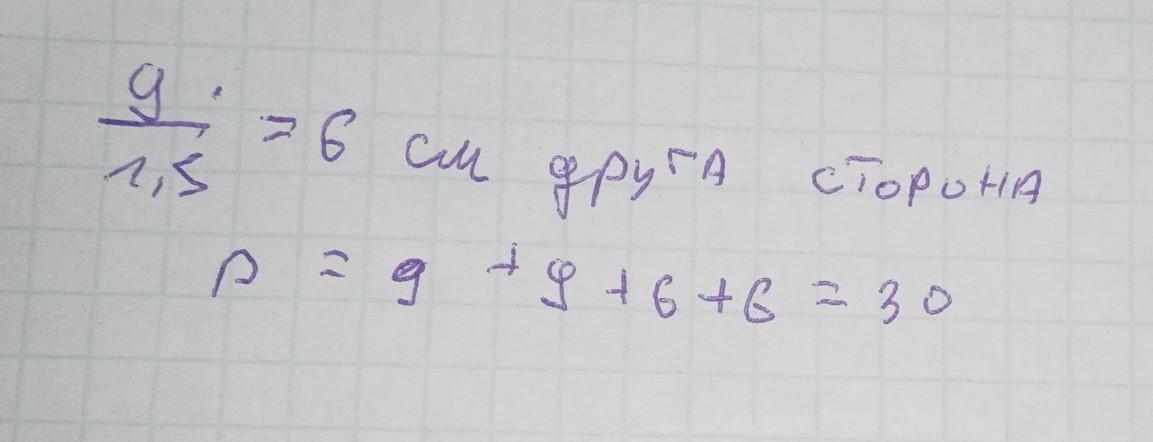 9/1,5 = 6 см друга сторона
P = 9 + 9 + 6 + 6 = 30